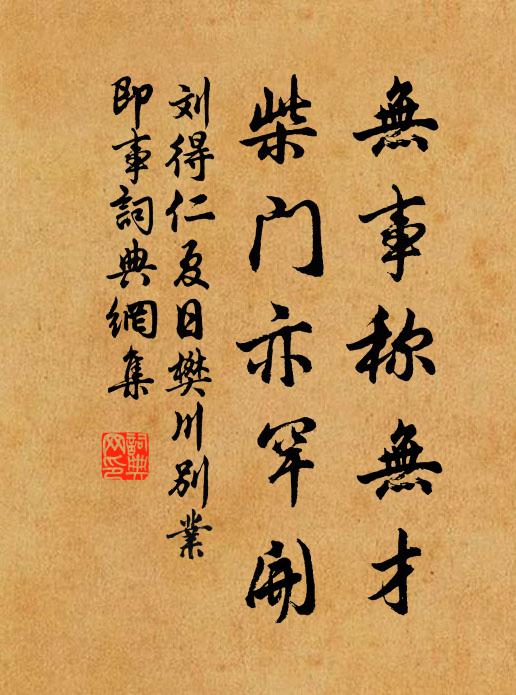 無事称無才
柴門亦罕開
刘得仁夏日樊川别業
即事詞典網集
詞典网印